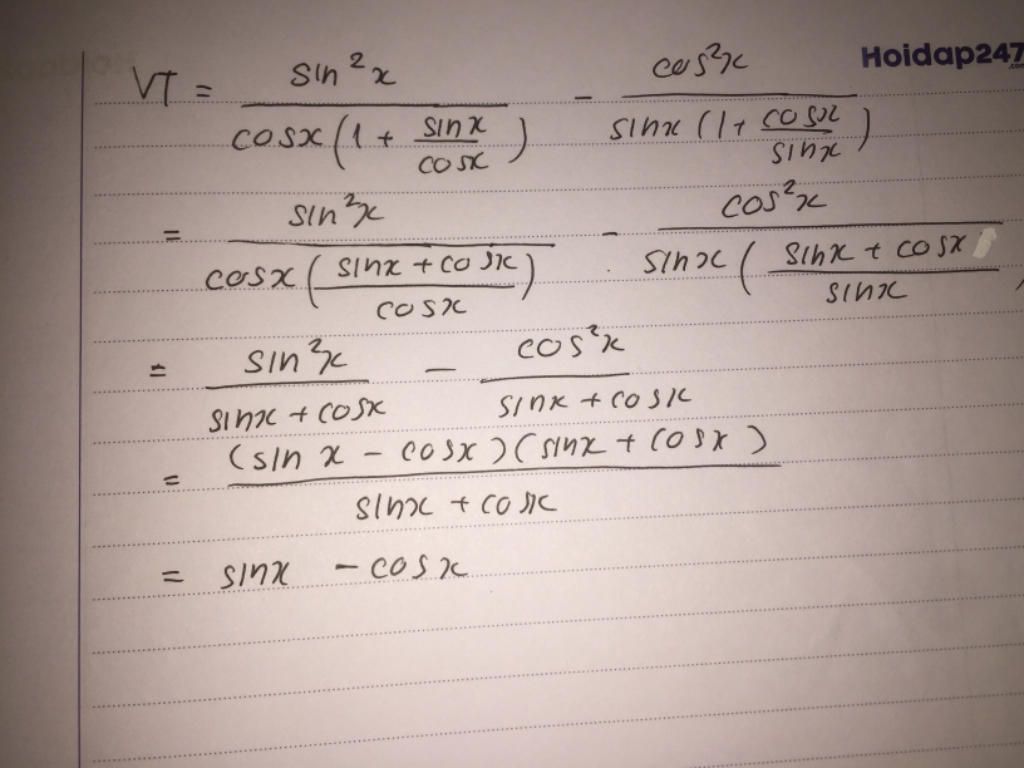 Hoidap247
.com
VT = sin²x / cosx(1 + sinx/cosx) - cos²x / sinx(1 + cosx/sinx)
= sin²x / cosx((sinx + cosx)/cosx) - cos²x / sinx((sinx + cosx)/sinx)
= sin²x / sinx + cosx - cos²x / sinx + cosx
= (sin x - cosx)(sinx + cosx) / sinx + cosx
= sinx - cosx